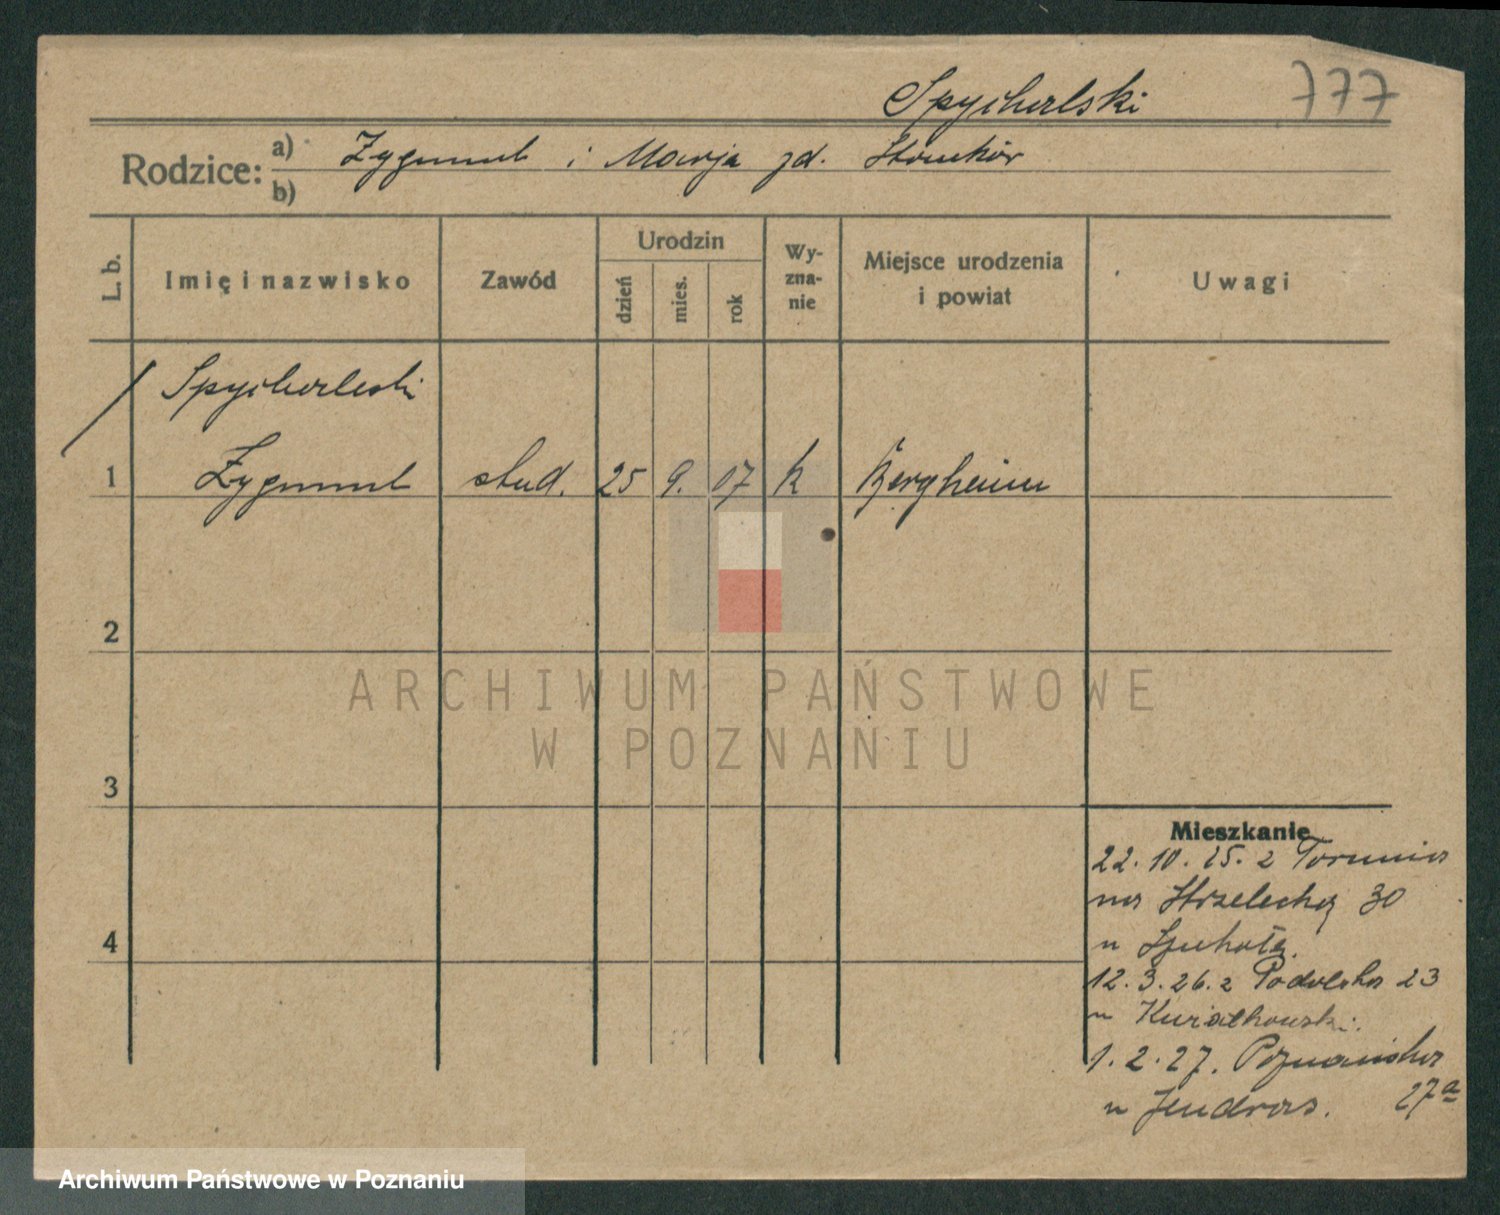 Spycherlski 777
Rodzice: a) Zygmunt i Marja zd.
b)
L. b. Imię i nazwisko Zawód Urodzin dzień mies. rok Wy-zna-nie Miejsce urodzenia i powiat Uwagi
1 Zygmunt stud. 25 9. 07 k Bergheim
2
3
4
Mieszkanie
22. 10. 25. z Torunia
na Strzelecką 30
u
12. 3. 26. z Podolska 23
u Kwiatkowski.
1. 2. 27. Poznańska
u Jendras. 27a
ARCHIWUM PAŃSTWOWE
W POZNANIU
Archiwum Państwowe w Poznaniu